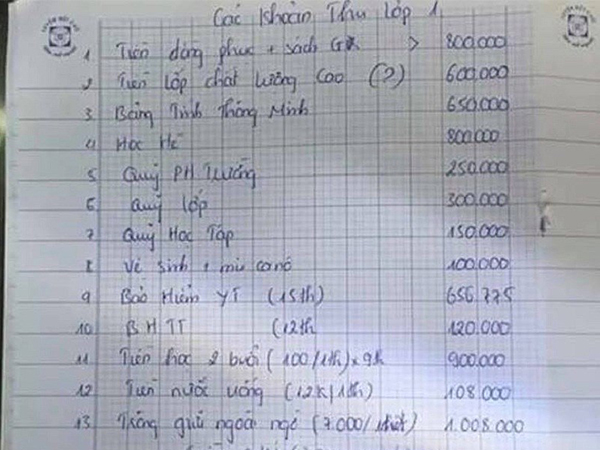 Các Khoản Thu Lớp 1
1 Tiền đồng phục + sách GK > 800.000
2 Tiền lớp chất lượng Cao (?) 600.000
3 Bảng Tính Thông Minh 650.000
4 Học Hè 800.000
5 Quỹ PH Trường 250.000
6 Quỹ lớp 300.000
7 Quỹ Học Tập 150.000
8 Vệ sinh + mũ ca nô 100.000
9 Bảo Hiểm YT (15th) 656.775
10 BHTT (12th 120.000
11 Tiền học 2 buổi (100/1th) x 9th 900.000
12 Tiền nước uống (12k/1th) 108.000
13 Trông giữ ngoài ngỏ (7.000/ 1.008.000